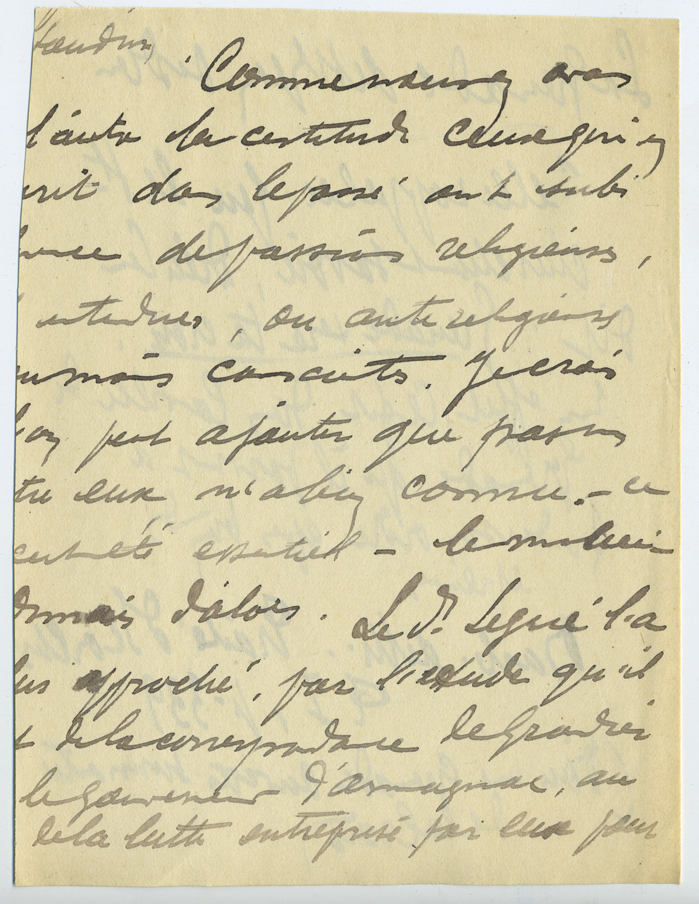 Loudun,
Commençons avec
l'auteur la certitude ceux qui en
écrit dans le passé ont subi
de passions religieuses,
ou antireligieuses
moins conscientes. Je crois
l'on peut ajouter que
eux n'a bien connu - ce
eut été essentiel - le milieu
d'alors. Le Dr. Legué l'a
plus approché, par l'étude qu'il
de la correspondance de Grandier
le gouverneur d'Armagnac, au
de la lutte entreprise par eux pour